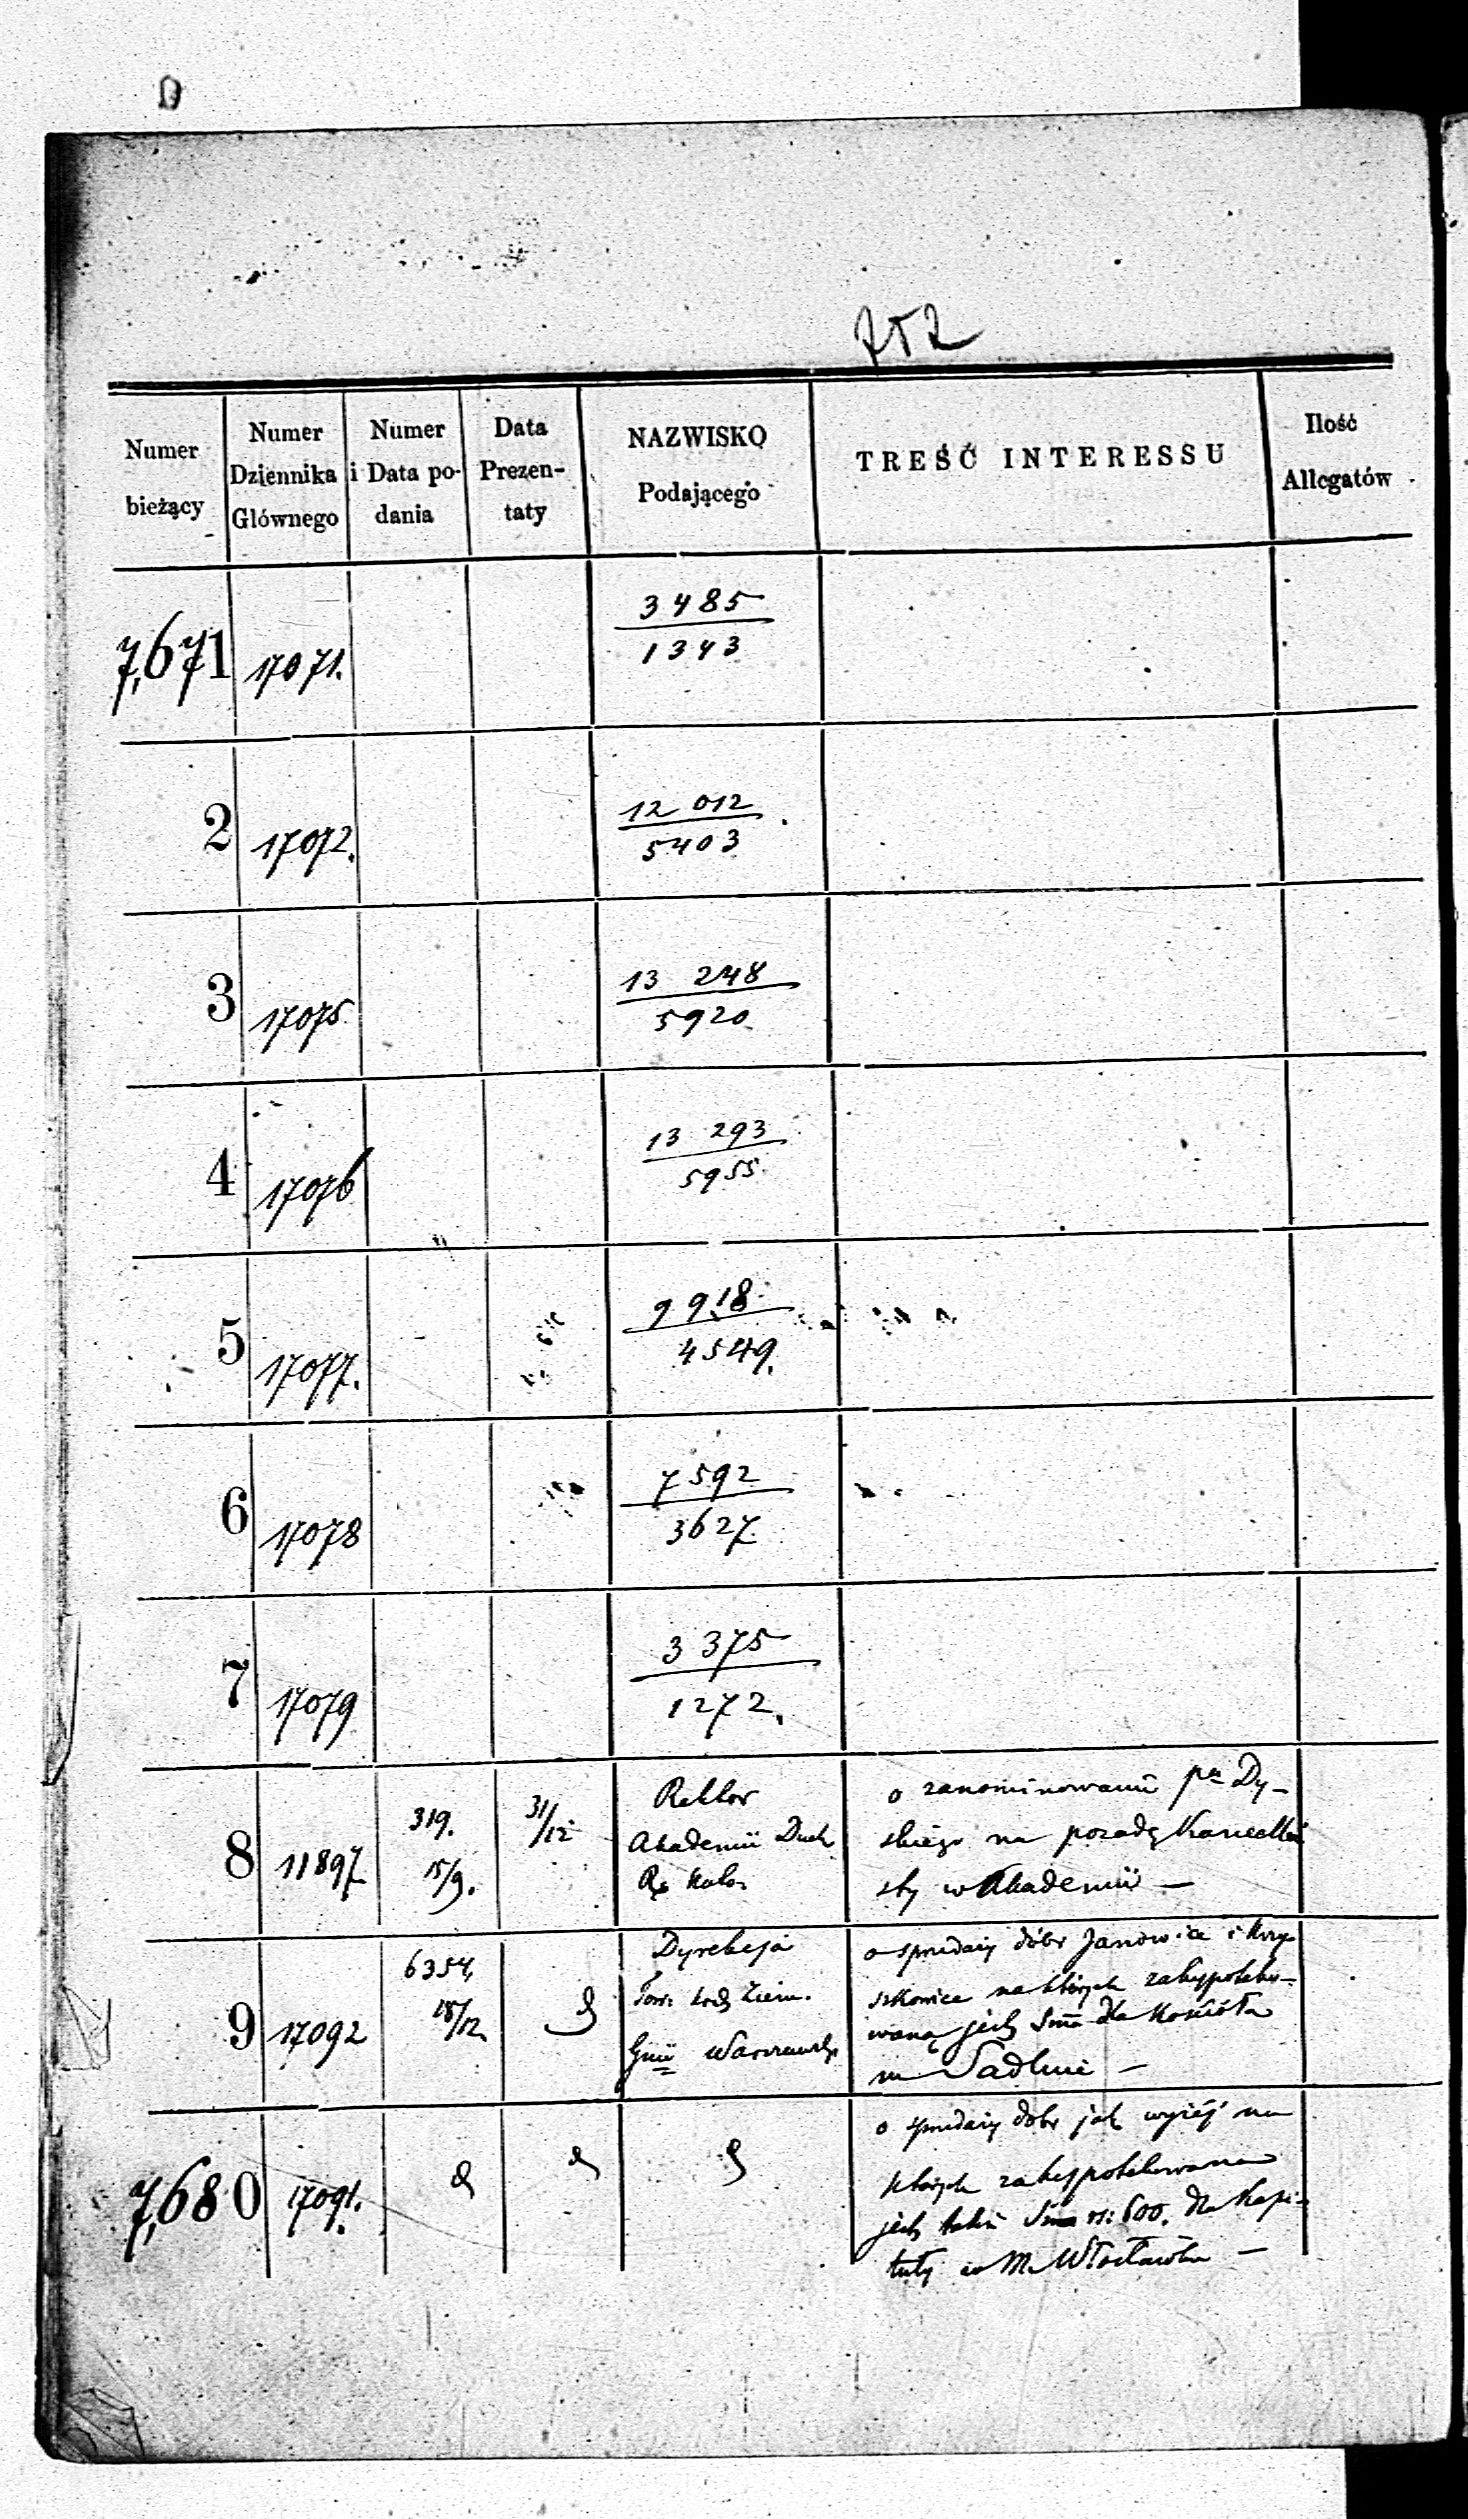 752
Numer bieżący
Numer Dziennika Głównego
Numer i Data podania
Data Prezentaty
NAZWISKO Podającego
TREŚĆ INTERESSU
Ilość Allegatów
7,671 17071. 3485
1343
2 17072. 12 012
5403
3 17075 13 248
5920
4 17076 13 293
5955
5 17077. 9918
4549.
6 17078 7592
3627
7 17079 3375
1272.
8 11897 319. 15/9. 31/12
Rektor
Akademii Duch
o zanominowanie pa Dy-
skiego na posadę
w Akademii —
9 17092 6354, 18/12
Dyrekcja
Tow: Kred Ziem.
Gnii Warszawsk
o sprzedaży dóbr Janowice i Krzy
szkowice na których zahypoteko-
waną jest Sma dla Kościoła
w Sadlnie —
7,680 17091.
o sprzedaży dóbr jak wyżej na
których zahypotekowana
jest Sma rs: 600. dla Kapi-
tuły w M. Włocławku —